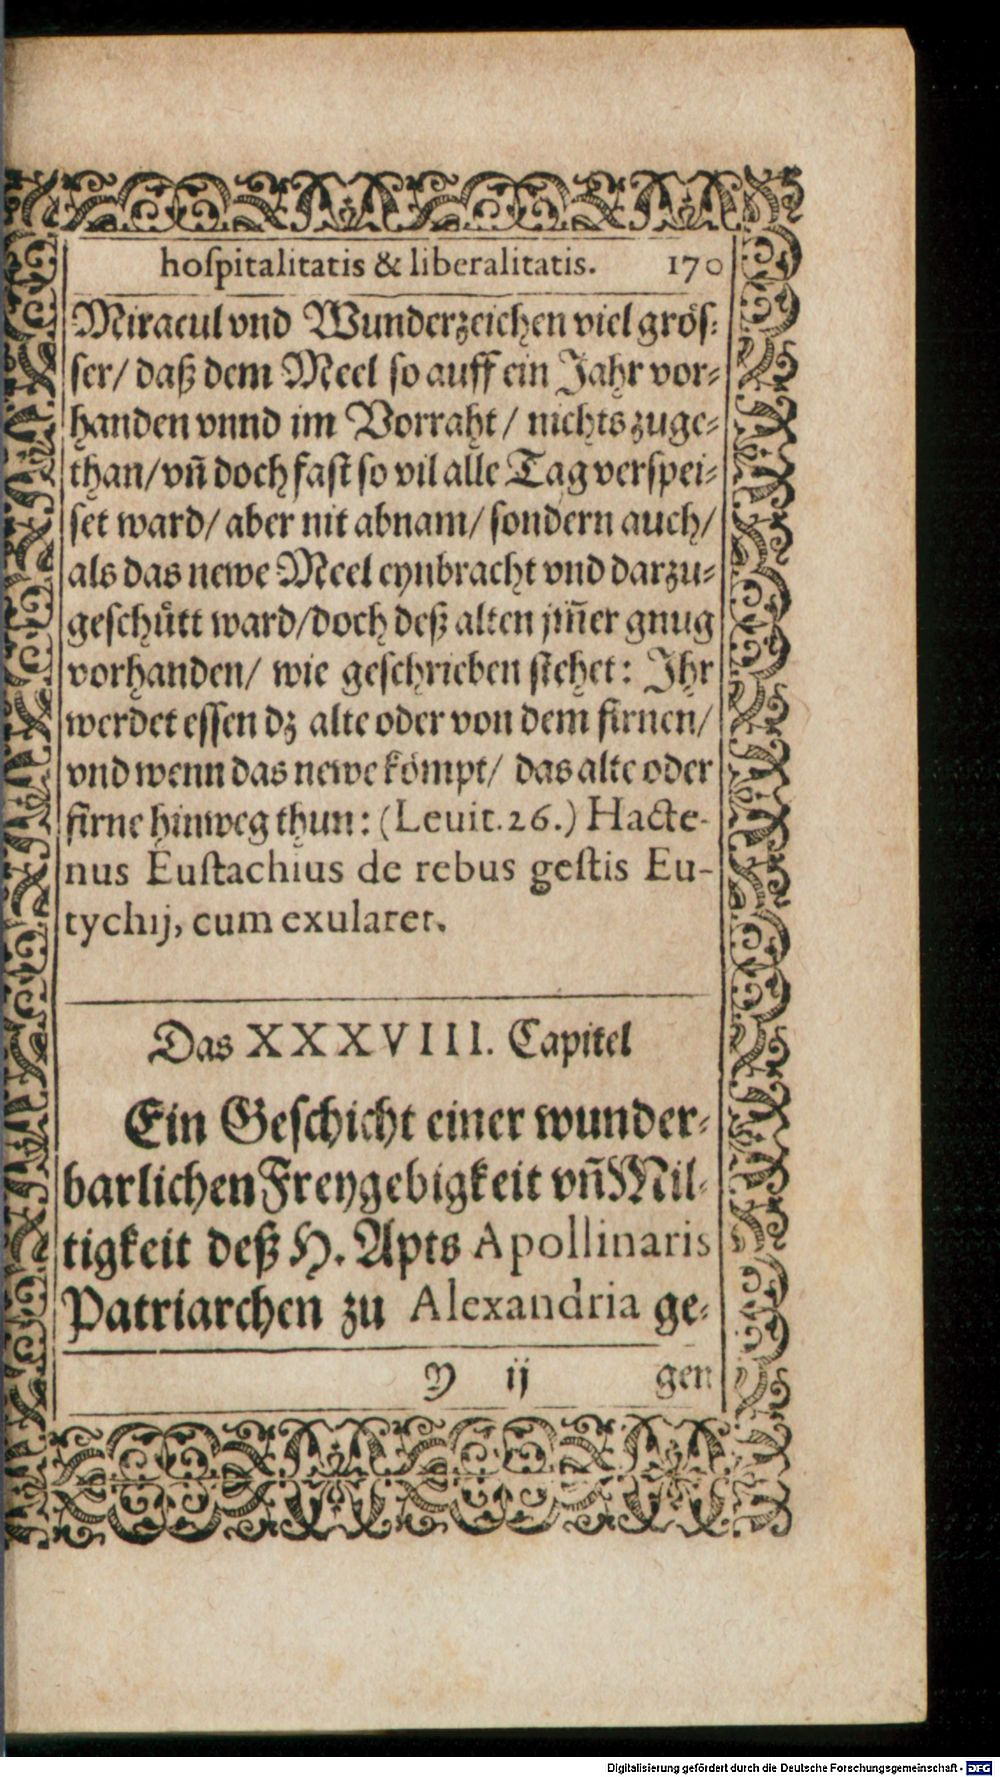 hoſpitalitatis & liberalitatis. 170
Miracul vnd Wunderzeichen viel gröſ⸗
ſer/ daß dem Meel ſo auff ein Jahr vor⸗
handen vnnd im Vorraht/ nichts zuge⸗
than/ vñ doch faſt ſo vil alle Tag verſpei⸗
ſet ward/ aber nit abnam/ ſondern auch/
als das newe Meel eynbracht vnd darzu⸗
geſchůtt ward/ doch deß alten jm̃er gnug
vorhanden/ wie geſchrieben ſtehet: Ihr
werdet eſſen dz alte oder von dem firnen/
vnd wenn das newe kömpt/ das alte oder
firne hinweg thun: (Leuit. 26.) Hacte-
nus Euſtachius de rebus geſtis Eu-
tychij, cum exularet.
Das XXXVIII. Capitel
Ein Geſchicht einer wunder⸗
barlichen Freygebigkeit vñ Mil⸗
tigkeit deß H. Apts Apollinaris
Patriarchen zu Alexandria ge⸗
Y ij gen
Digitalisierung gefördert durch die Deutsche Forschungsgemeinschaft - DFG